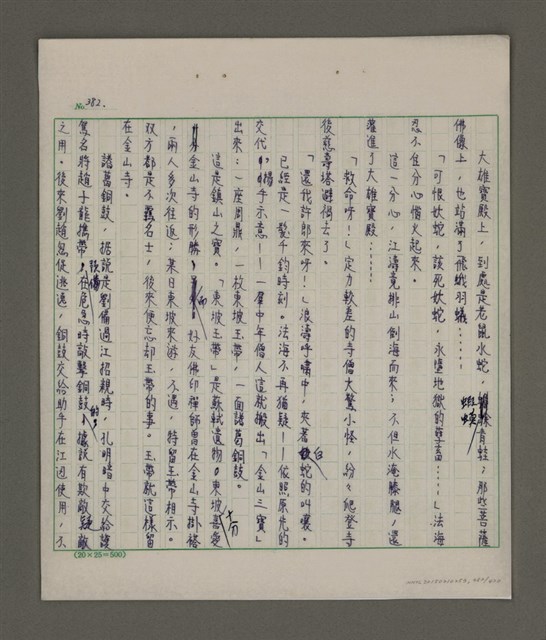 No. 382.
大雄寶殿上,到處是老鼠水蛇,蜈蚣青蛙;那些菩薩
佛像上,也站滿了飛蛾羽蟻……
「可恨妖蛇,該死妖蛇,永墮地獄的孽畜……」法海
忍不住分心惱火起來。
這一分心,江濤竟排山倒海而來;不但水淹膝腿,還
罐進了大雄寶殿……
「救命呀!」定力較差的寺僧大驚小怪,紛紛爬登寺
後慈壽塔避禍去了。
「還我許郎來呀!」浪濤呼嘯中,夾著白蛇的叫嚷。
已經是一髮千鈞時刻。法海不再猶疑——依照原先的
交代,揚手示意——一群中年僧人這就搬出「金山三寶」
出來:一座周鼎,一枚東坡玉帶,一面諸葛銅鼓。
這是鎮山之寶。「東坡玉帶」是蘇軾遺物。東坡十分喜愛
金山寺的形勝,而好友佛印禪師曾在金山寺掛褡
,兩人多次往返;某日東坡來游,不遇,特留玉帶相示。
双方都是不羈名士,後來便忘却玉帶的事。玉帶就這樣留
在金山寺。
諸葛銅鼓,据說是劉備過江招親時,孔明暗中交給護
駕名將趙子龍攜帶,在危急時敲擊銅鼓,據說有欺敵疑敵的
之用。後來劉趙忽促逃遁,銅鼓交給助手在江边使用,不
(20×25=500)